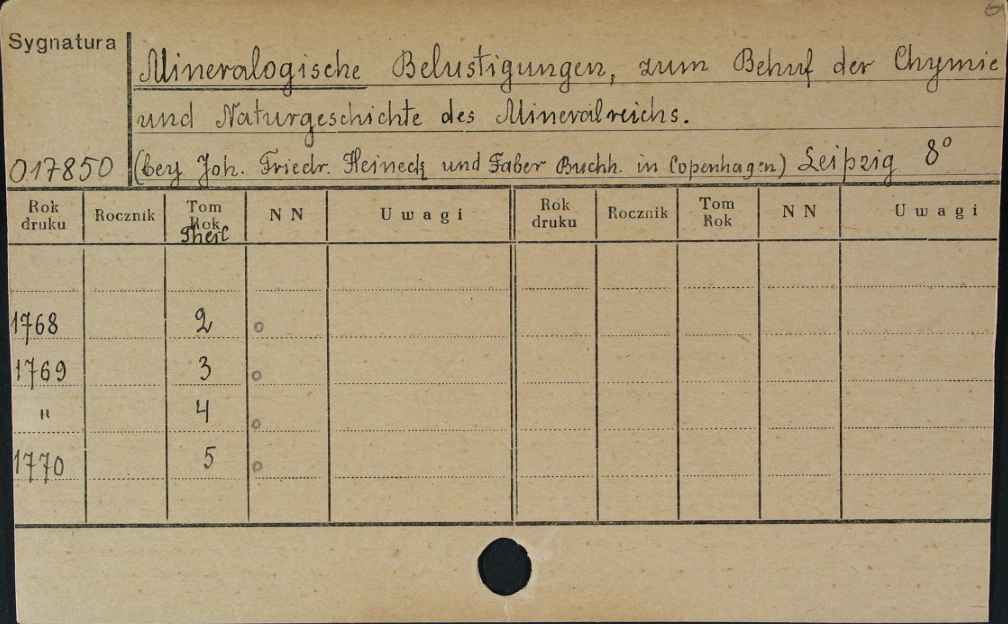 Sygnatura
Mineralogische Belustigungen, zum Behuf der Chymie
und Naturgeschichte des Mineralreichs.
017850 (bey Joh. Friedr. Heineck und Faber Buchh. in Copenhagen) Leipzig 8°
Rok druku Rocznik Tom Rok Theil N N Uwagi Rok druku Rocznik Tom Rok N N Uwagi
1768 2 o
1769 3 o
" 4 o
1770 5 o